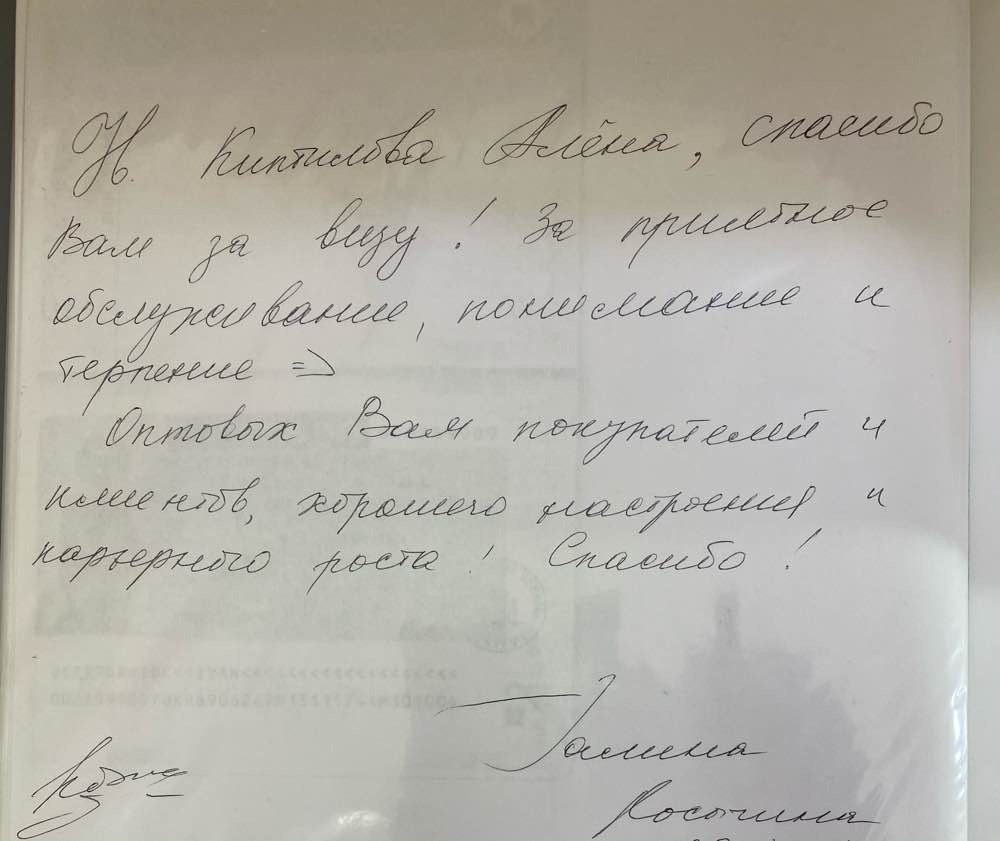 Н. Киптилова Алёна, спасибо
Вам за визу! За приятное
обслуживание, понимание и
терпение =)
Оптовых Вам покупателей и
клиентов, хорошего настроения и
карьерного роста! Спасибо!
Галина